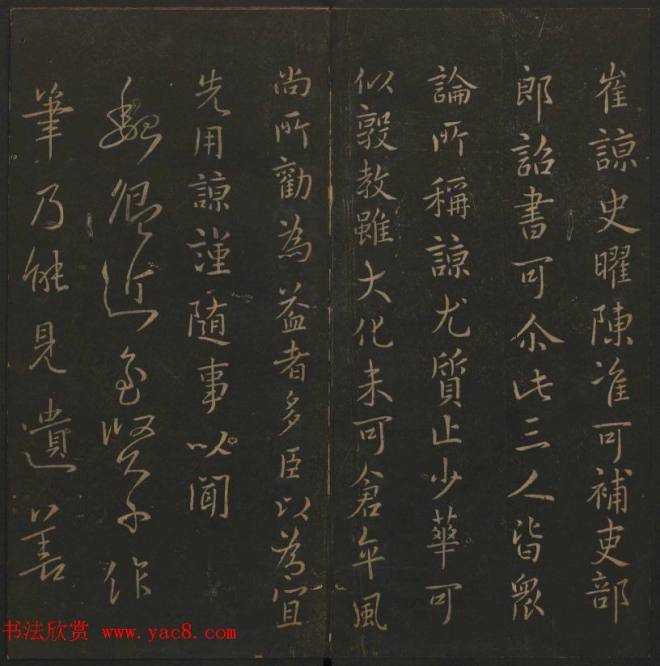 崔諒史曜陳准可補吏部
郎詔書可尒此三人皆眾
論所稱諒尤質止少華可
以敦教雖大化未可倉卒風
尚所勸為益者多臣以為宜
先用諒謹隨事以聞
近
筆乃能見遺善
书法欣赏 www.yac8.com